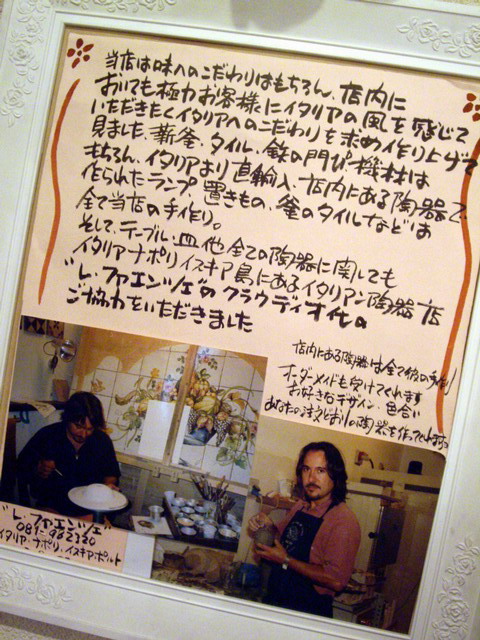 当店は味へのこだわりはもちろん、店内に
おいても極力お客様にイタリアの風を感じて
いただきたくイタリアへのこだわりを求め作り上げて
見ました、薪釜、タイル、鉄の門ぴ機材は
もちろん、イタリアより直輸入、店内にある陶器で、
作られたランプ 置きもの、釜のタイルなどは
全て当店の手作り。
そして、テーブル、皿、他全ての陶器に関しても
イタリアナポリイスキア島にあるイタリアン陶器店
"レ・ファエンツェ"のクラウディオ氏の
ご協力をいただきました
店内にある陶器は全て彼の手作り
オーダーメイドも受けてくれます
お好きなデザイン、色合い
あなたの注文どおりの陶器を作ってくれます。
"レ・ファエンツェ"
イタリア・ナポリ、イスキア・ポルト